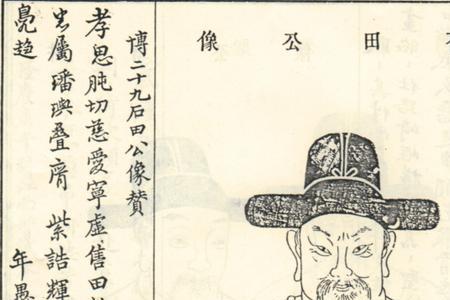 田公像
博二十九石田公像贊
孝思肫切慈愛寧虛售田
屬璠璵叠膺 紫誥輝
亮趋 年愚